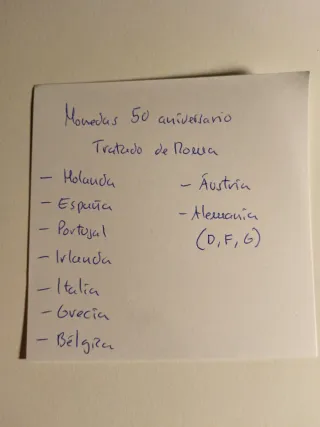 Monedas 50 aniversario
Tratado de Roma
- Holanda
- España
- Portugal
- Irlanda
- Italia
- Grecia
- Bélgica
- Áustria
- Alemania
(D, F, G)